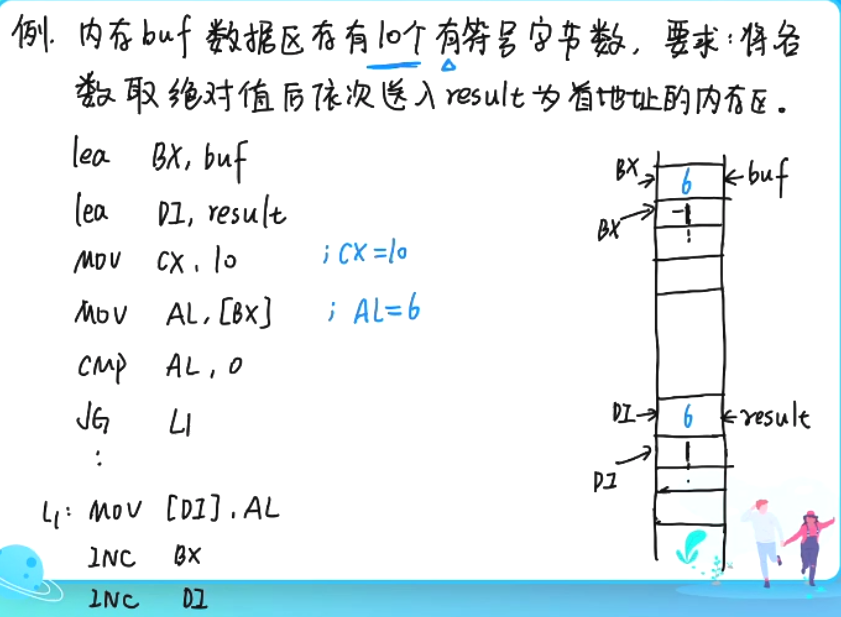 例. 内存buf数据区存有10个有符号字节数, 要求:将各
数取绝对值后依次送入result为首地址的内存区。
lea BX, buf
lea DI, result
MOV CX, 10 ; CX=10
MOV AL, [BX] ; AL=6
CMP AL, 0
JG L1
⋮
L1: MOV [DI], AL
INC BX
INC DI
BX→ 6 ←buf
BX→ -1
⋮
DI→ 6 ←result
DI→ 1